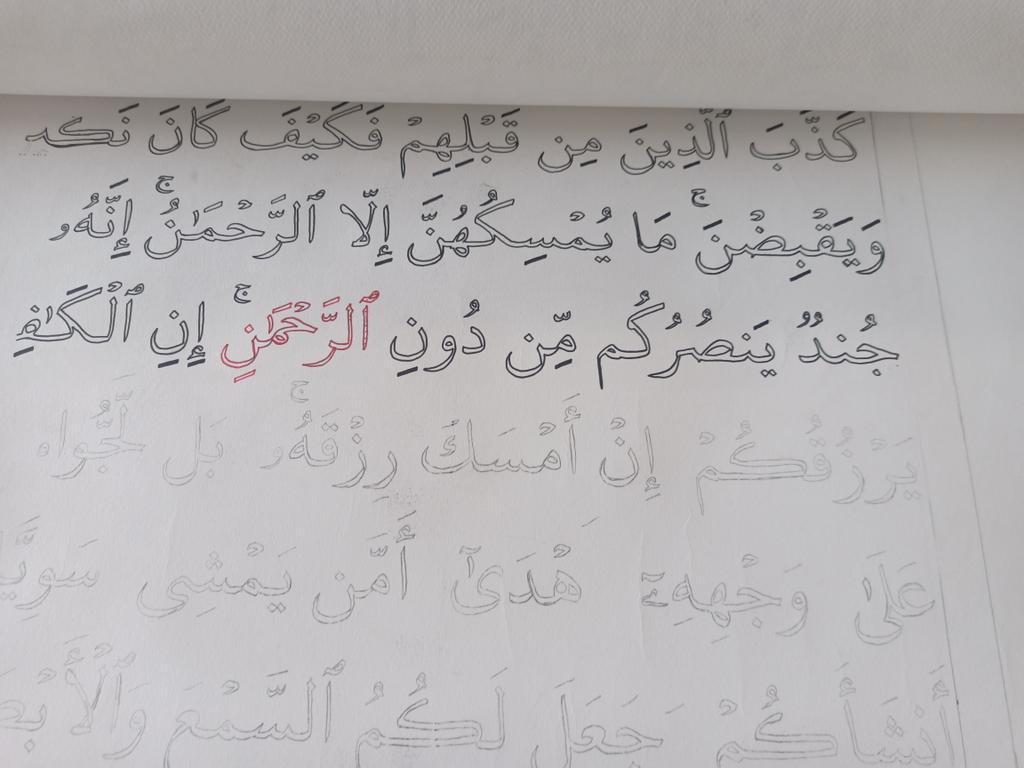 كَذَّبَ ٱلَّذِينَ مِن قَبْلِهِمْ فَكَيْفَ كَانَ
وَيَقْبِضْنَ ۚ مَا يُمْسِكُهُنَّ إِلَّا ٱلرَّحْمَٰنُ ۚ إِنَّهُۥ
جُندٌ يَنصُرُكُم مِّن دُونِ ٱلرَّحْمَٰنِ ۚ إِنِ
يَرْزُقُكُمْ إِنْ أَمْسَكَ رِزْقَهُۥ ۚ بَل لَّجُّوا۟
عَلَىٰ وَجْهِهِۦٓ أَهْدَىٰٓ أَمَّن يَمْشِى
أَنشَأَكُمْ جَعَلَ لَكُمُ ٱلسَّمْعَ